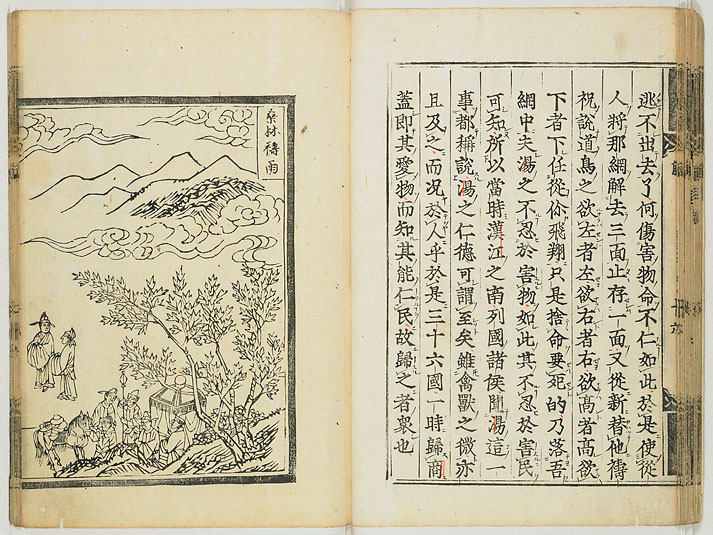 逃不出去了何傷害物命不仁如此於是使從
人將那網解去三面止存一面又從新替他禱
祝說道鳥之欲左者左欲右者右欲高者高欲
下者下任從你飛翔只是捨命要死的乃落吾
網中夫湯之不忍於害物如此其不忍於害民
可知所以當時漢江之南列國諸侯聞湯這一
事都稱說湯之仁德可謂至矣雖禽獸之微亦
且及之而况於人乎於是三十六國一時歸商
蓋即其愛物而知其能仁民故歸之者衆也
桑林禱雨